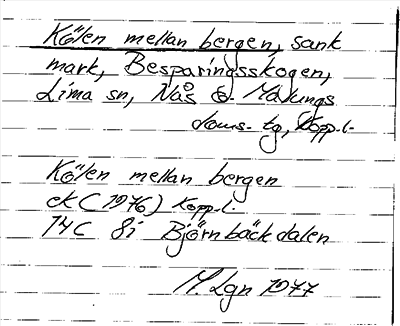 Kölen mellan bergen, sank
mark, Besparingsskogen,
Lima sn, Nås o. Malungs
doms. tg, Kopp. l.
Kölen mellan bergen
ek (1976) Kopp. l.
14C 8i Björnbäckdalen
M. Lgn 1977